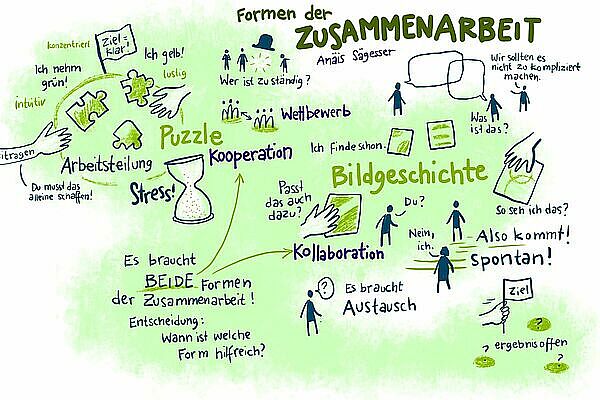 Formen der
ZUSAMMENARBEIT
Anäis Sägesser
konzentriert
Ziel =
klar!
Ich gelb!
Ich nehm
grün!
lustig
intuitiv
Puzzle
Arbeitsteilung
itragen
Du musst das
alleine schaffen!
Stress!
Wer ist zuständig?
Wettbewerb
Kooperation
Wir sollten es
nicht zu kompliziert
machen.
Was
ist das?
Ich finde schon.
Bildgeschichte
So seh ich das?
Passt
das auch
dazu?
Du?
Nein,
ich.
Kollaboration
Also kommt!
Spontan!
Es braucht
BEIDE Formen
der Zusammenarbeit!
Entscheidung:
Wann ist welche
Form hilfreich?
?
Es braucht
Austausch
Ziel
?
?
?
ergebnisoffen